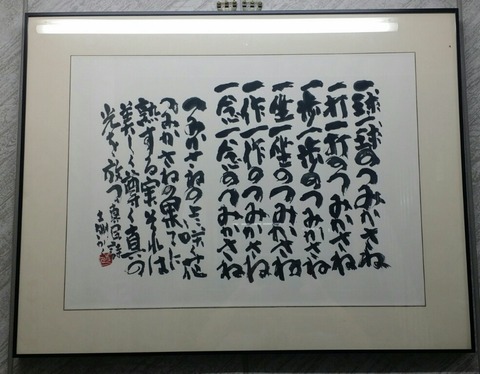 一球一球のつみかさね
一打一打のつみかさね
一歩一歩のつみかさね
一坐一坐のつみかさね
一作一作のつみかさね
一念一念のつみかさね
つみかさねの上に咲く花
つみかさねの果てに
熟する実それは
美しく尊く真の
光を放つ 真民詩